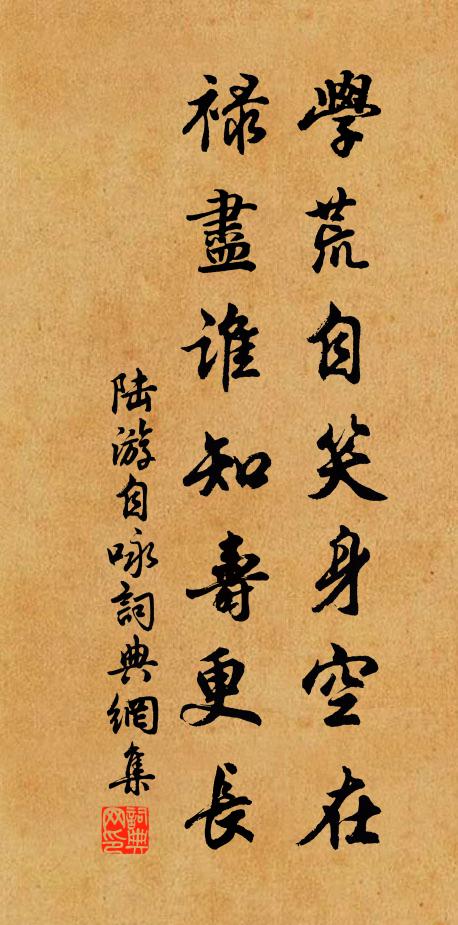 學荒自笑身空在
祿盡誰知壽更長
陆游自咏詞典網集
詞典网印